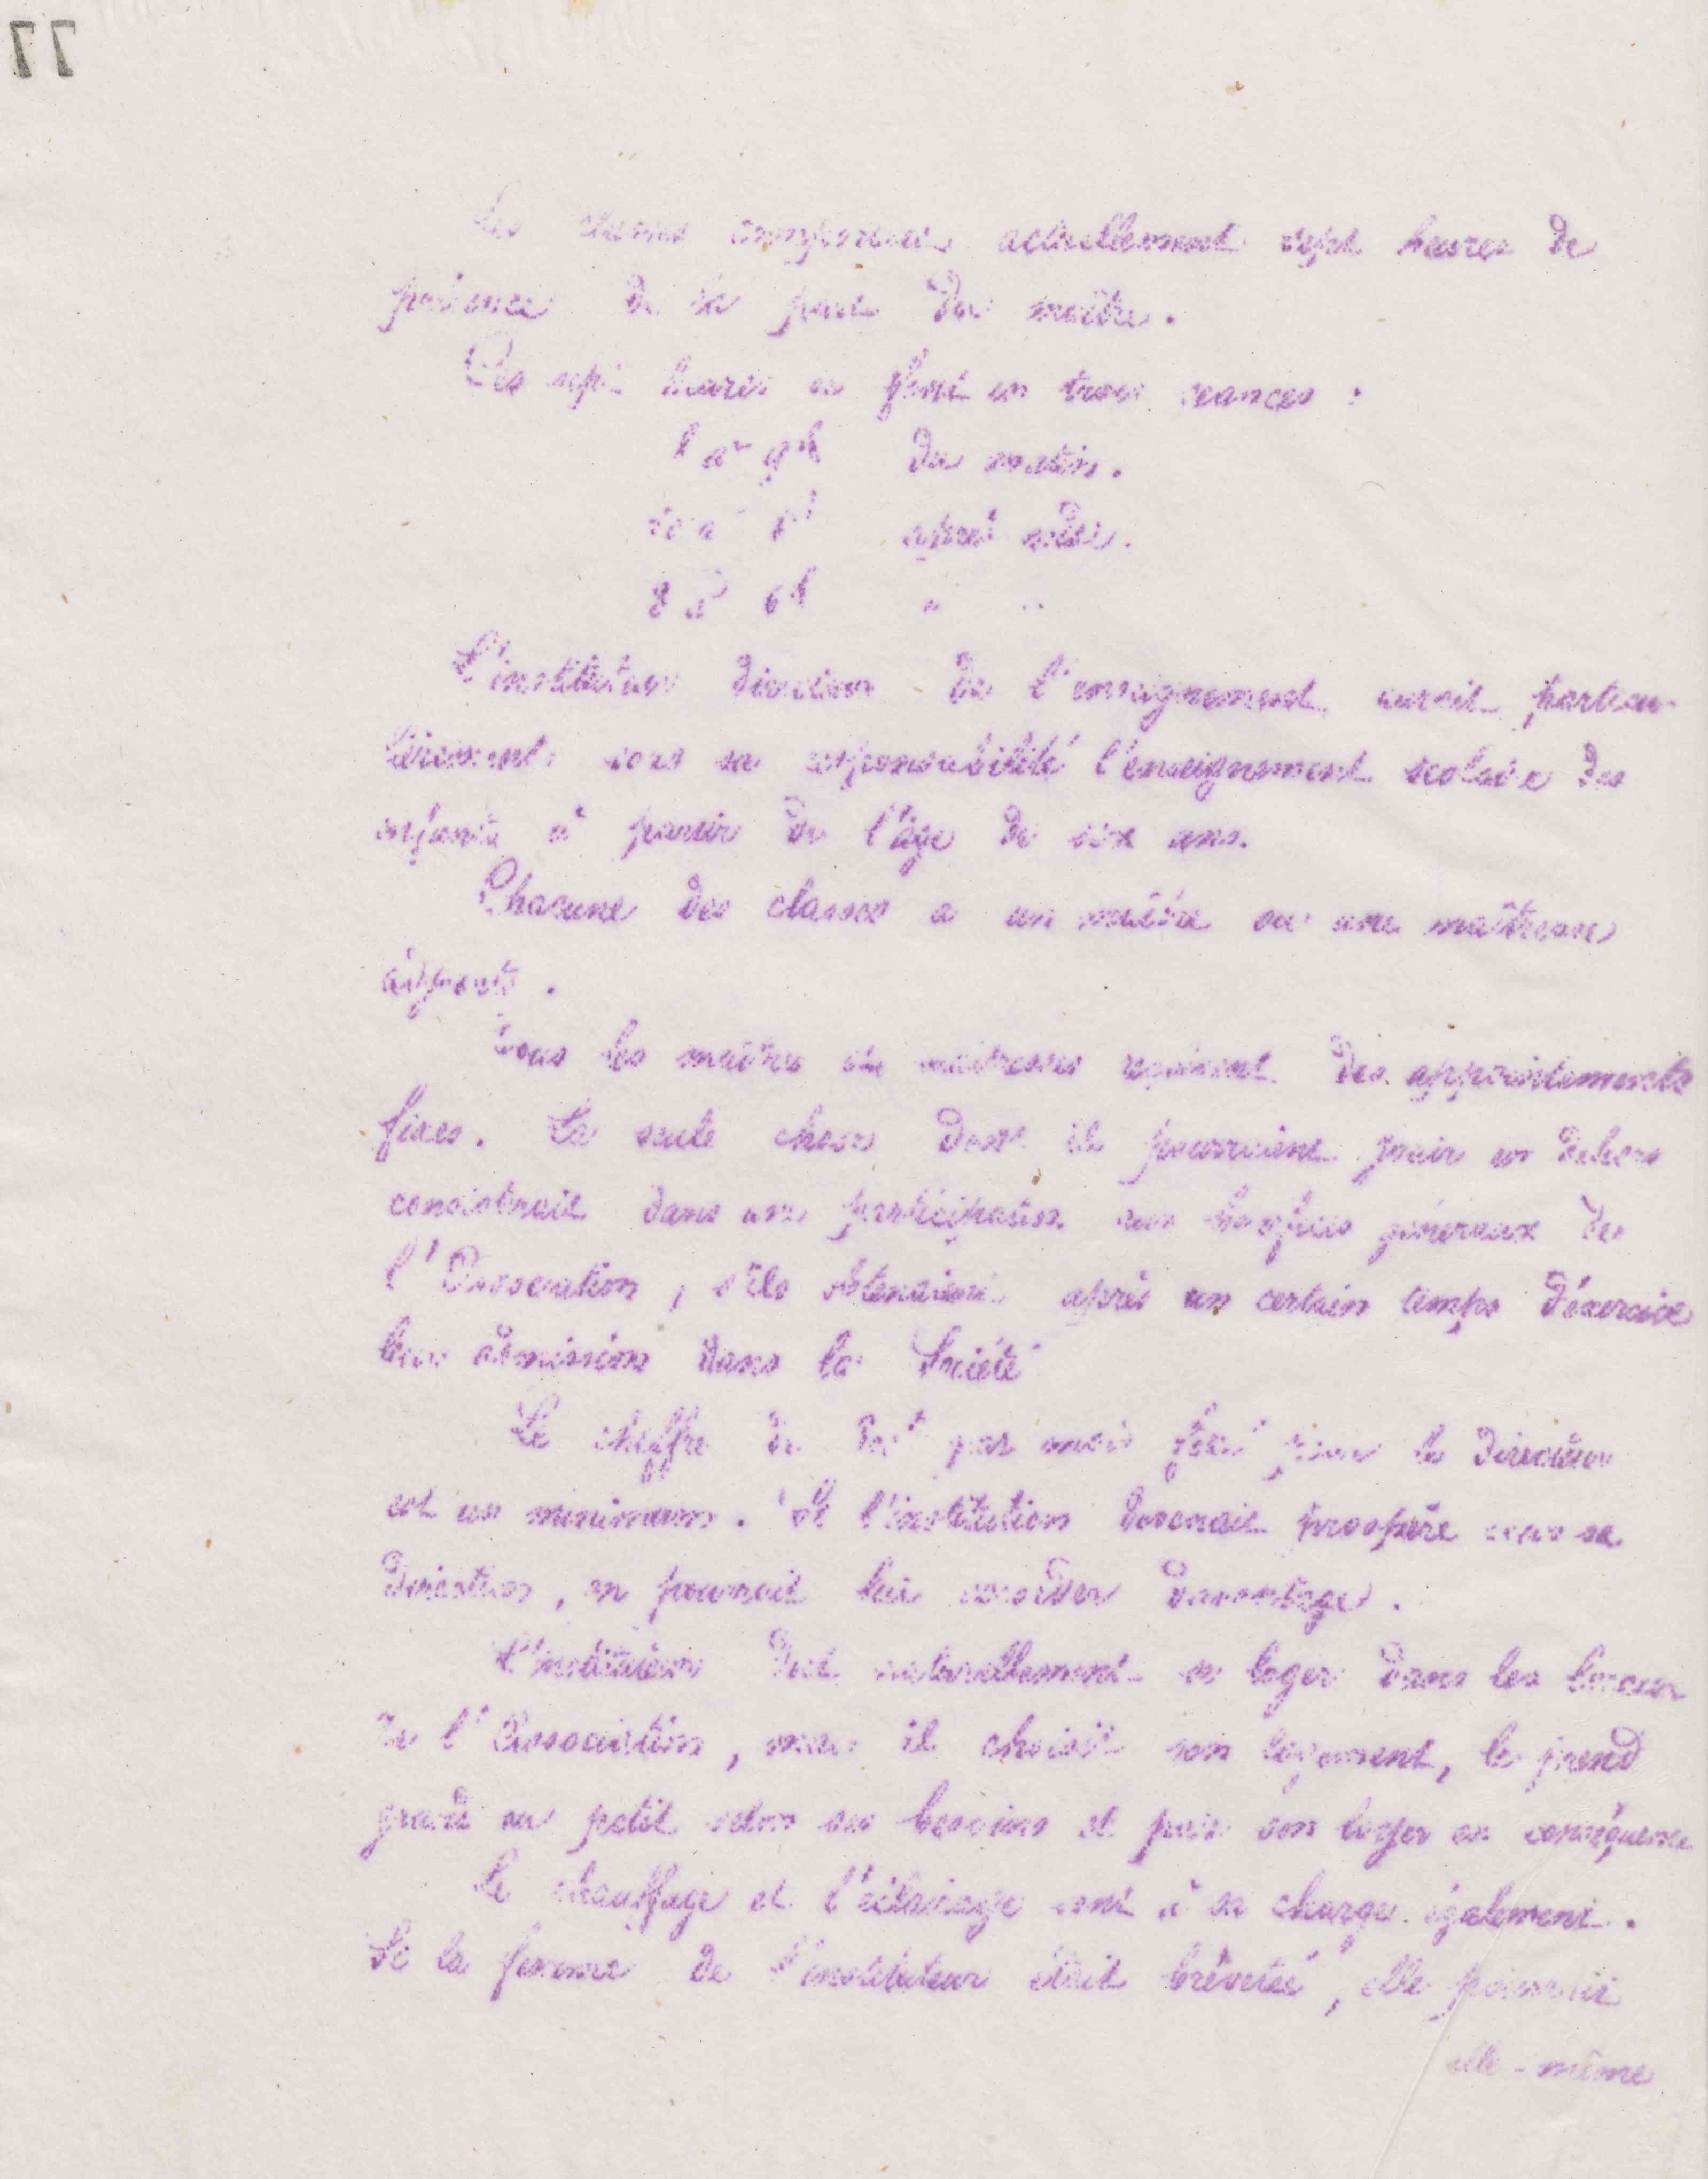 77
Les classes comportent actuellement sept heures de
présence de la part du maître.
Ces sept heures se font en trois séances :
à 9h du matin.
à après midi.
à 6h " "
L'instituteur directeur de l'enseignement aurait particu-
lièrement sous sa responsabilité l'enseignement scolaire des
enfants à partir de l'âge de six ans.
Chacune des classes a un maître ou une maîtresse
adjoints.
Tous les maîtres ou maîtresses reçoivent des appointements
fixes. La seule chose dont ils pourraient jouir en dehors
consisterait dans une participation aux bénéfices généraux de
l'Association, s'ils obtenaient après un certain temps d'exercice
leur admission dans la Société
Le chiffre de par mois fixé pour le directeur
est un minimum. Si l'institution devenait prospère sous sa
direction, on pourrait lui accorder davantage.
L'instituteur doit naturellement se loger dans les locaux
de l'Association, mais il choisit son logement, le prend
grand ou petit selon ses besoins et paie son loyer en conséquence
Le chauffage et l'éclairage sont à sa charge également.
Si la femme de l'instituteur était brévetée, elle pourrait
elle-même